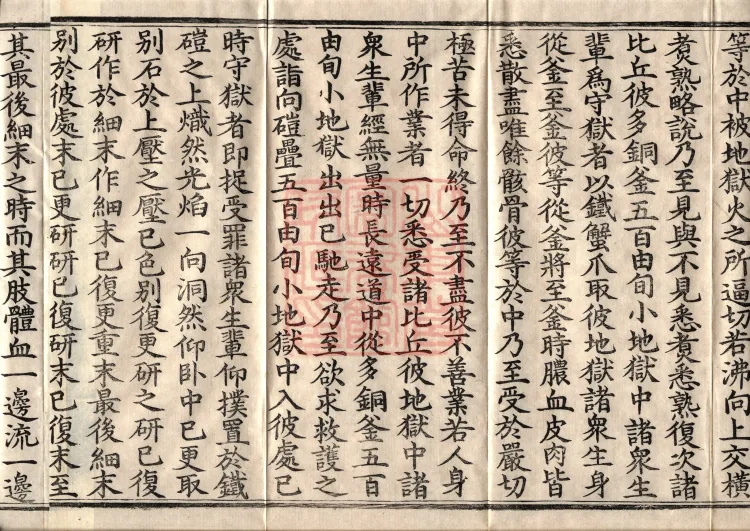 等於中被地獄火之所逼切若沸向上交橫
煑熟略說乃至見與不見悉煑悉熟復次諸
比丘彼多銅釜五百由旬小地獄中諸衆生
輩爲守獄者以鐵蟹爪取彼地獄諸衆生身
從釜至釜彼等從釜將至釜時膿血皮肉皆
悉散盡唯餘骸骨彼等於中乃至受於嚴切
極苦未得命終乃至不盡彼不善業若人身
中所作業者一切悉受諸比丘彼地獄中諸
衆生輩經無量時長遠道中從多銅釜五百
由旬小地獄出出已馳走乃至欲求救護之
處詣向磑疊五百由旬小地獄中入彼處已
時守獄者即捉受罪諸衆生輩仰撲置於鐵
磑之上熾然光焰一向洞然仰卧中已更取
別石於上壓之壓已色別復更研之研已復
研作於細末作細末已復更重末最後細末
別於彼處末已更研研已復研末已復末至
其最後細末之時而其肢體血一邊流一邊